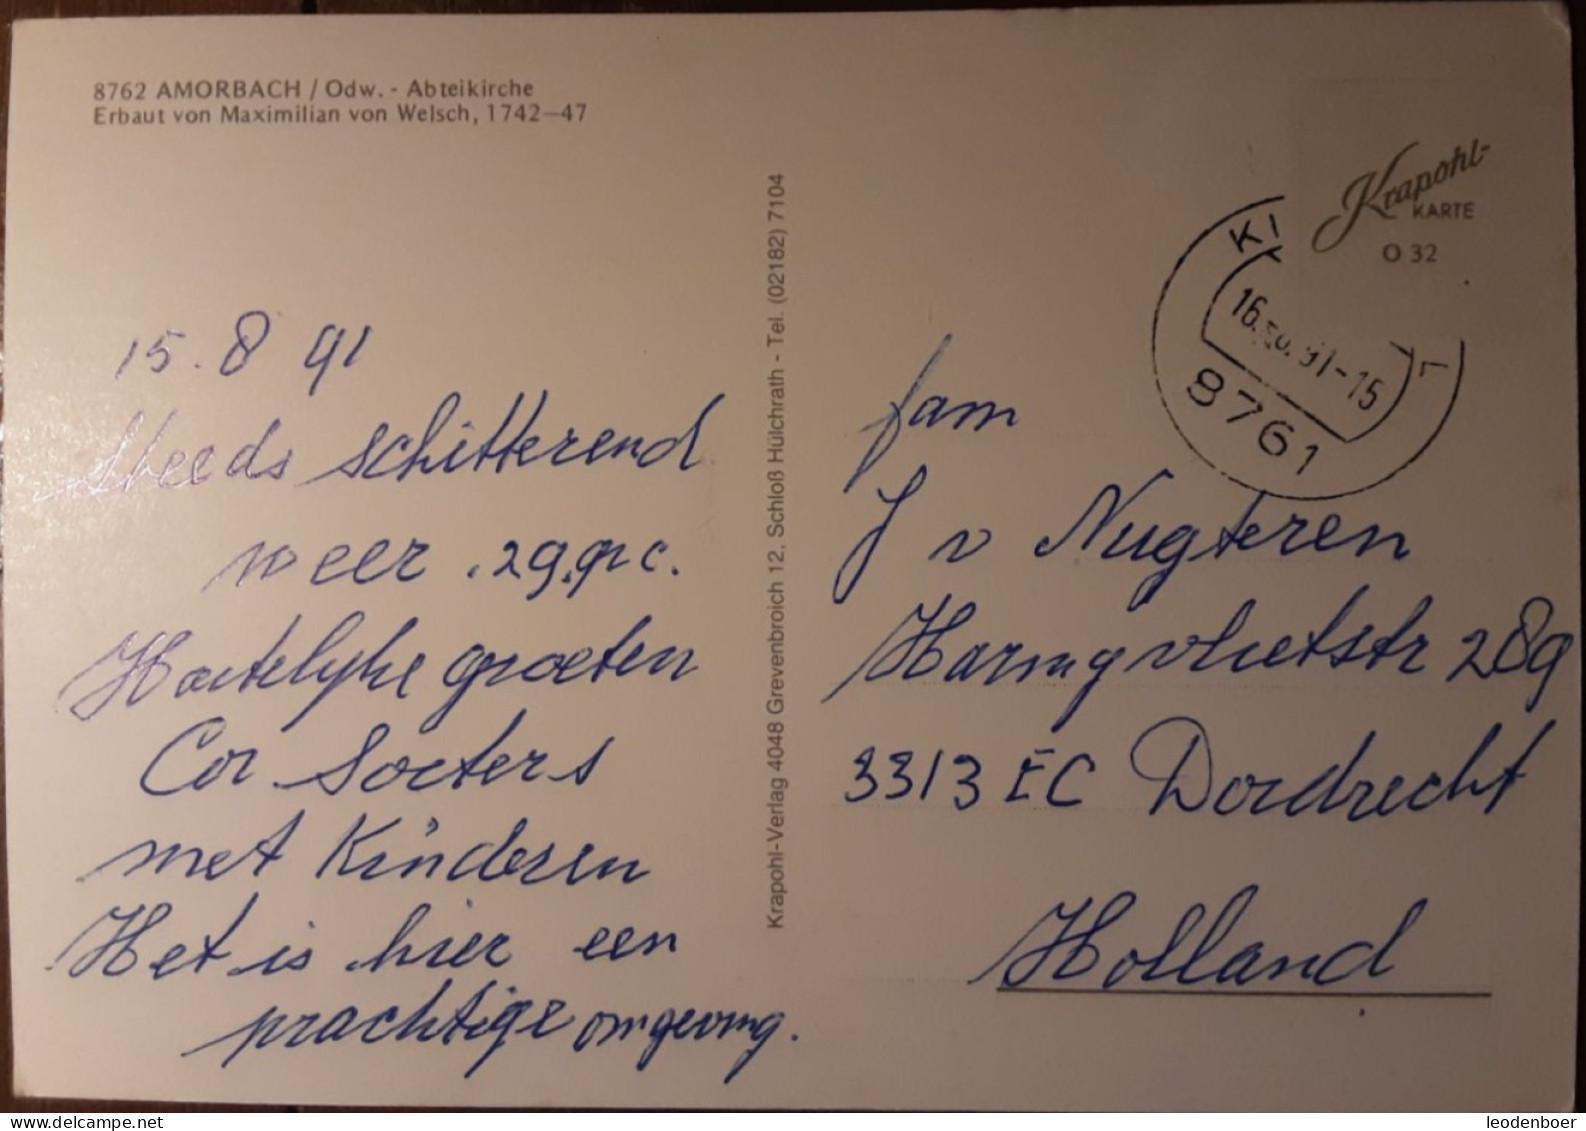 8762 AMORBACH / Odw. - Abteikirche
Erbaut von Maximilian von Welsch, 1742—47
15.8 91
Steeds schitterend
weer. 29.gr c.
Hartelijke groeten
Cor Soeters
met Kinderen
Het is hier een
prachtige omgeving.
Krapohl-Verlag 4048 Grevenbroich 12, Schloß Hülchrath - Tel. (02182) 7104
Krapohl-
KARTE
O 32
KI
16. 91-15
8761
fam
J v Nugteren
Haringvlietstr 289
3313 EC Dordrecht
Holland
leodenboer